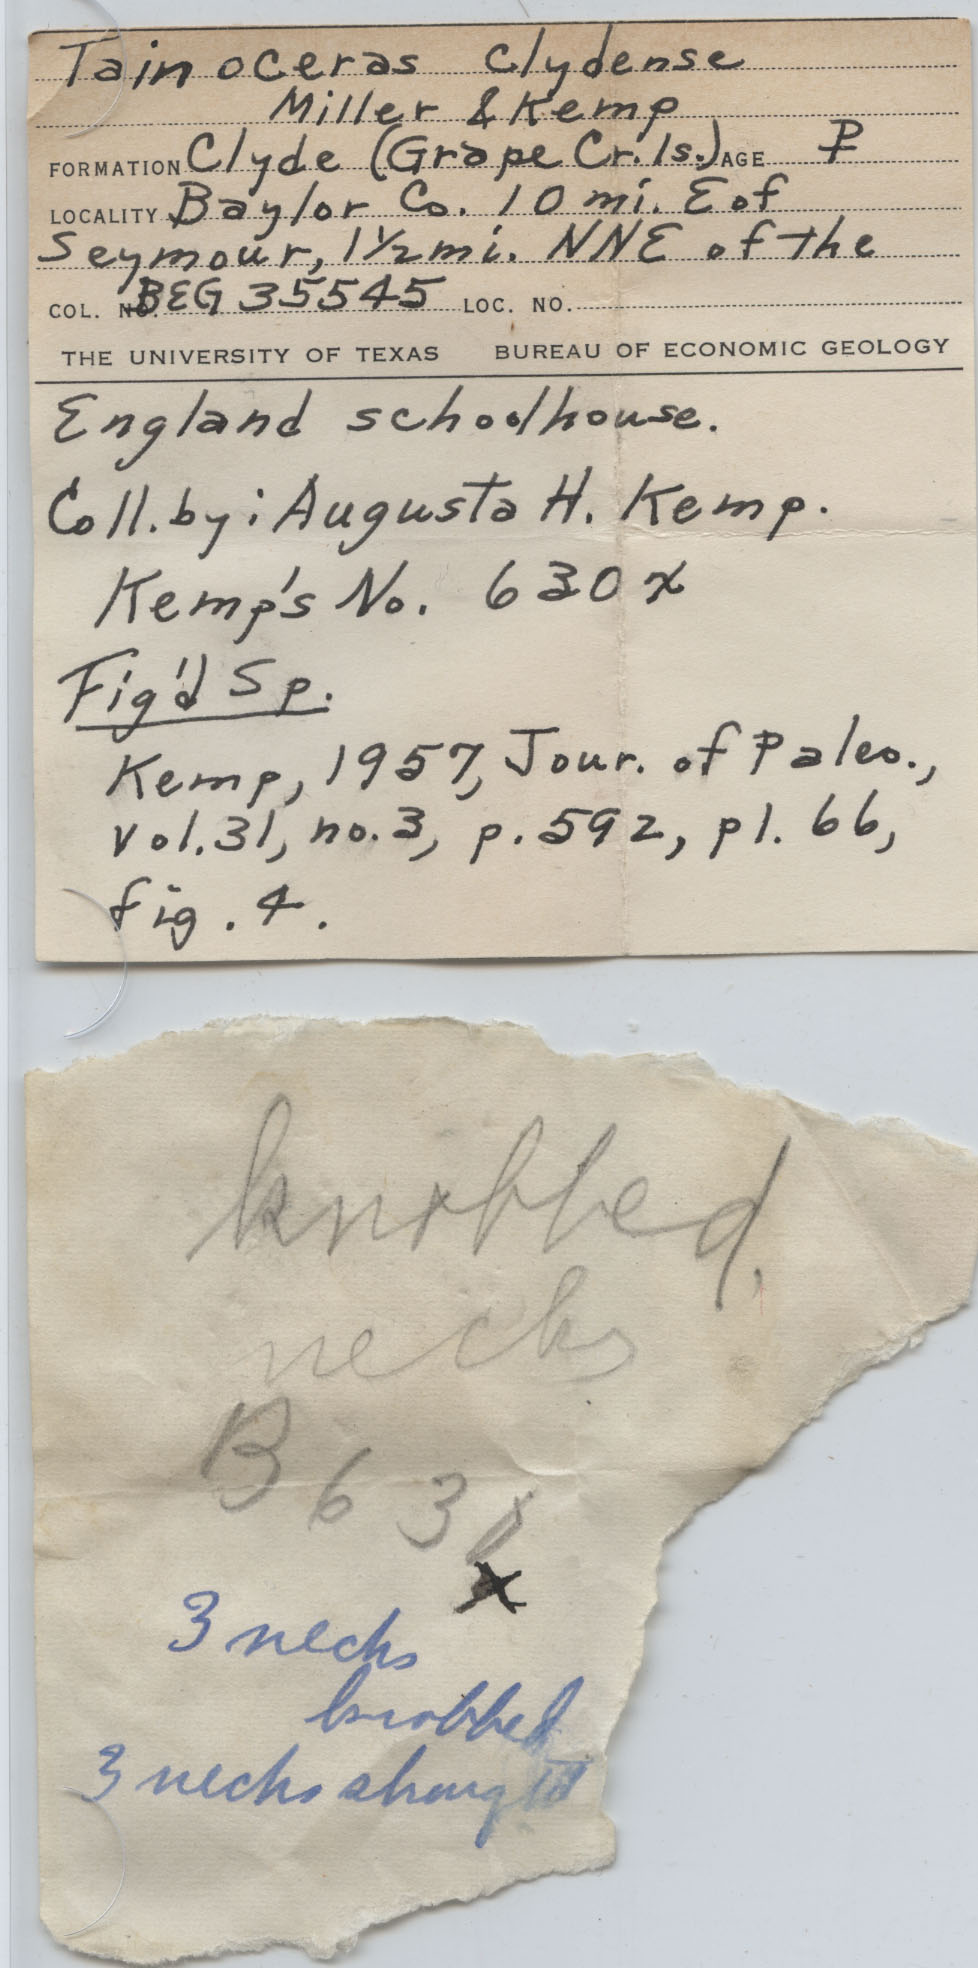 Tainoceras Clydense
Miller & Kemp
FORMATION Clyde (Grape Cr. ls.) AGE P
LOCALITY Baylor Co. 10 mi. E of
Seymour, 1½ mi. NNE of the
COL. NO. BEG 35545 LOC. NO.
THE UNIVERSITY OF TEXAS BUREAU OF ECONOMIC GEOLOGY
England schoolhouse.
Coll. by: Augusta H. Kemp.
Kemp's No. 630x
Fig'd Sp.
Kemp, 1957, Jour. of Paleo.,
Vol. 31, no. 3, p. 592, pl. 66,
fig. 4.
knobbed,
necks
B 630
x
3 necks
knobbed
3 necks